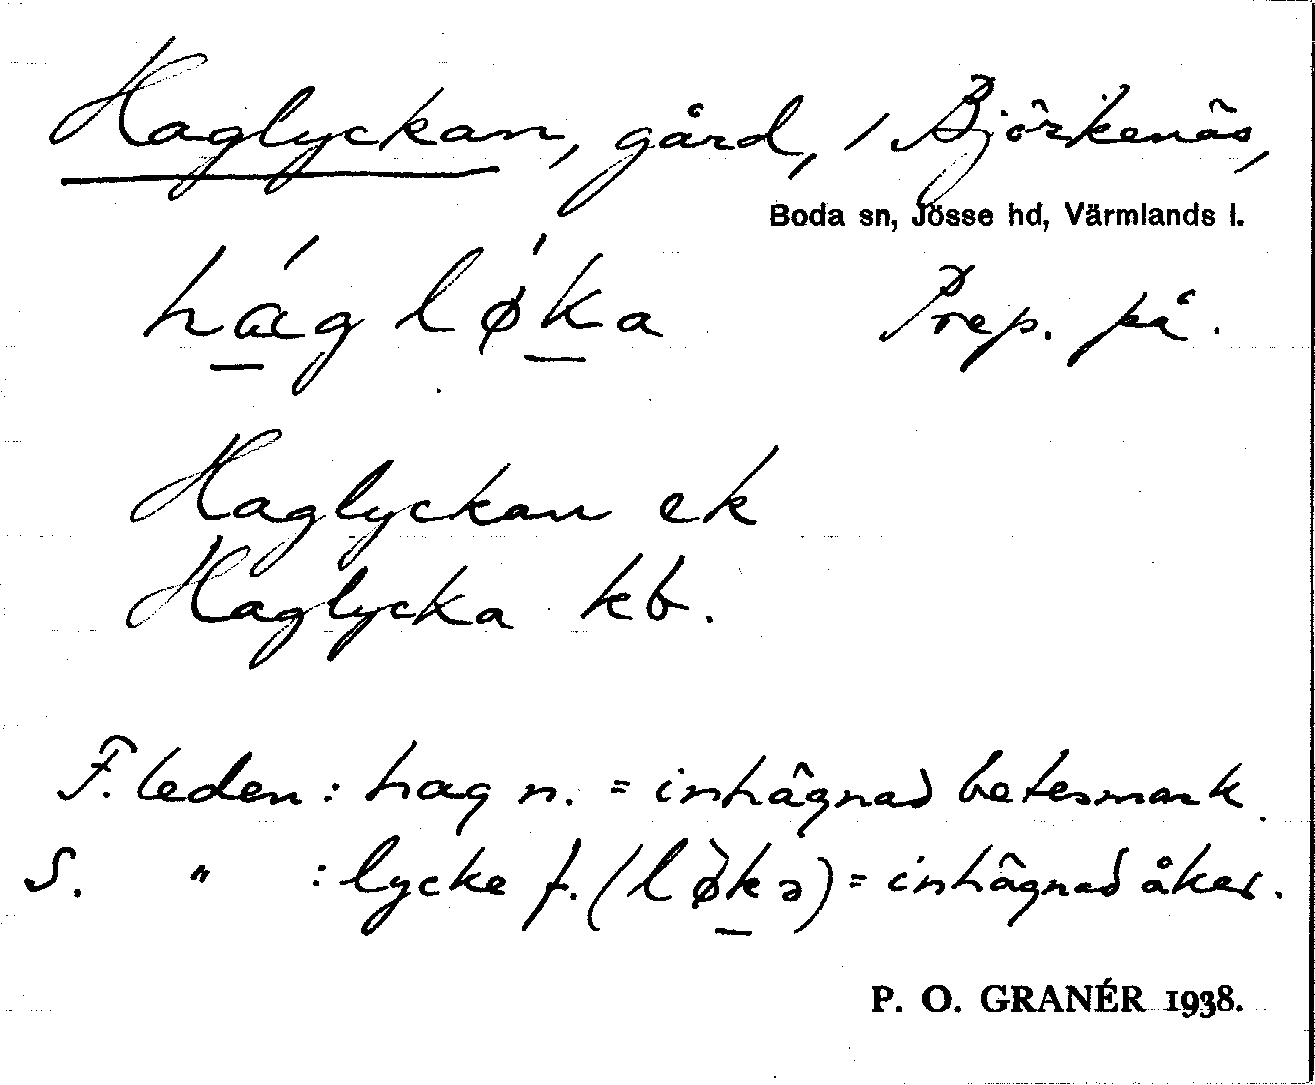 Haglyckan, gård, i Björkenäs,
Boda sn, Jösse hd, Värmlands l.
hág lǿka Prep. på.
Haglyckan ek
Haglycka kb.
F. leden: hag n. = inhägnad betesmark.
S. " : lycke f. (lø̀kə) = inhägnad åker.
P. O. GRANÉR 1938.